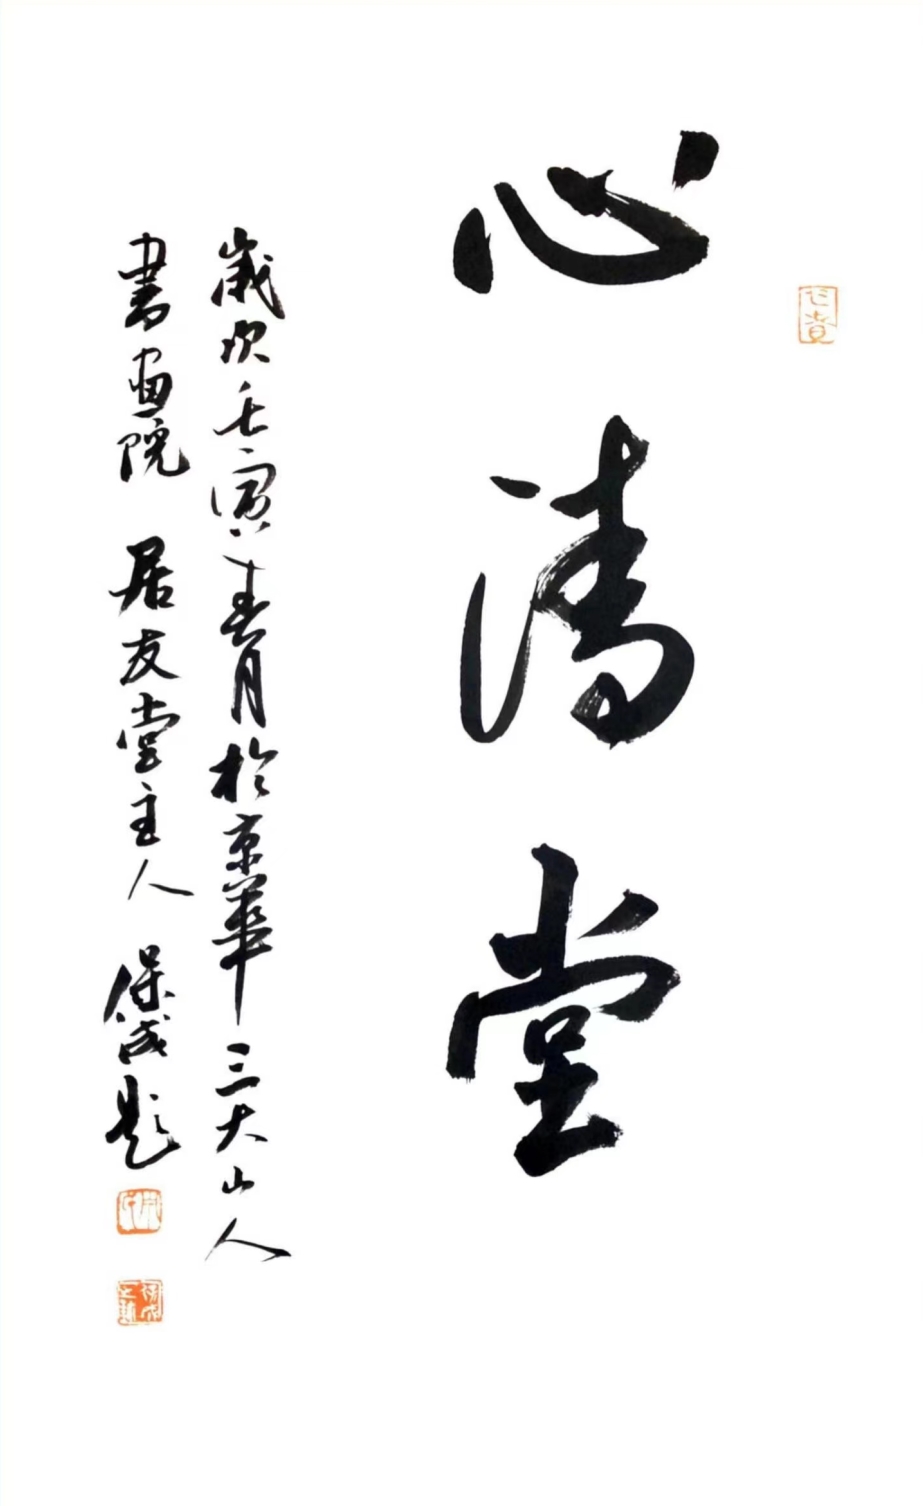 心清堂
歲次壬寅春月於京華三大山人
書画院 居友堂主人 保成題